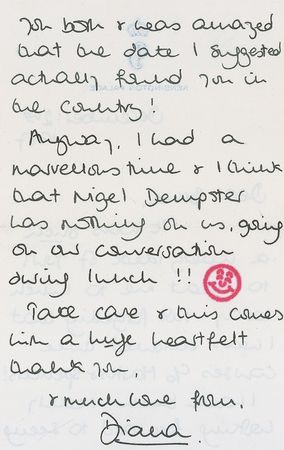 you both & was amazed
that the date I suggested
actually found you in
the country!
Anyway, I had a
marvellous time & I think
that Nigel Dempster
has nothing on us, going
on our conversation
during lunch !!
Take care & this comes
with a huge heartfelt
thank you,
& much love from,
Diana.